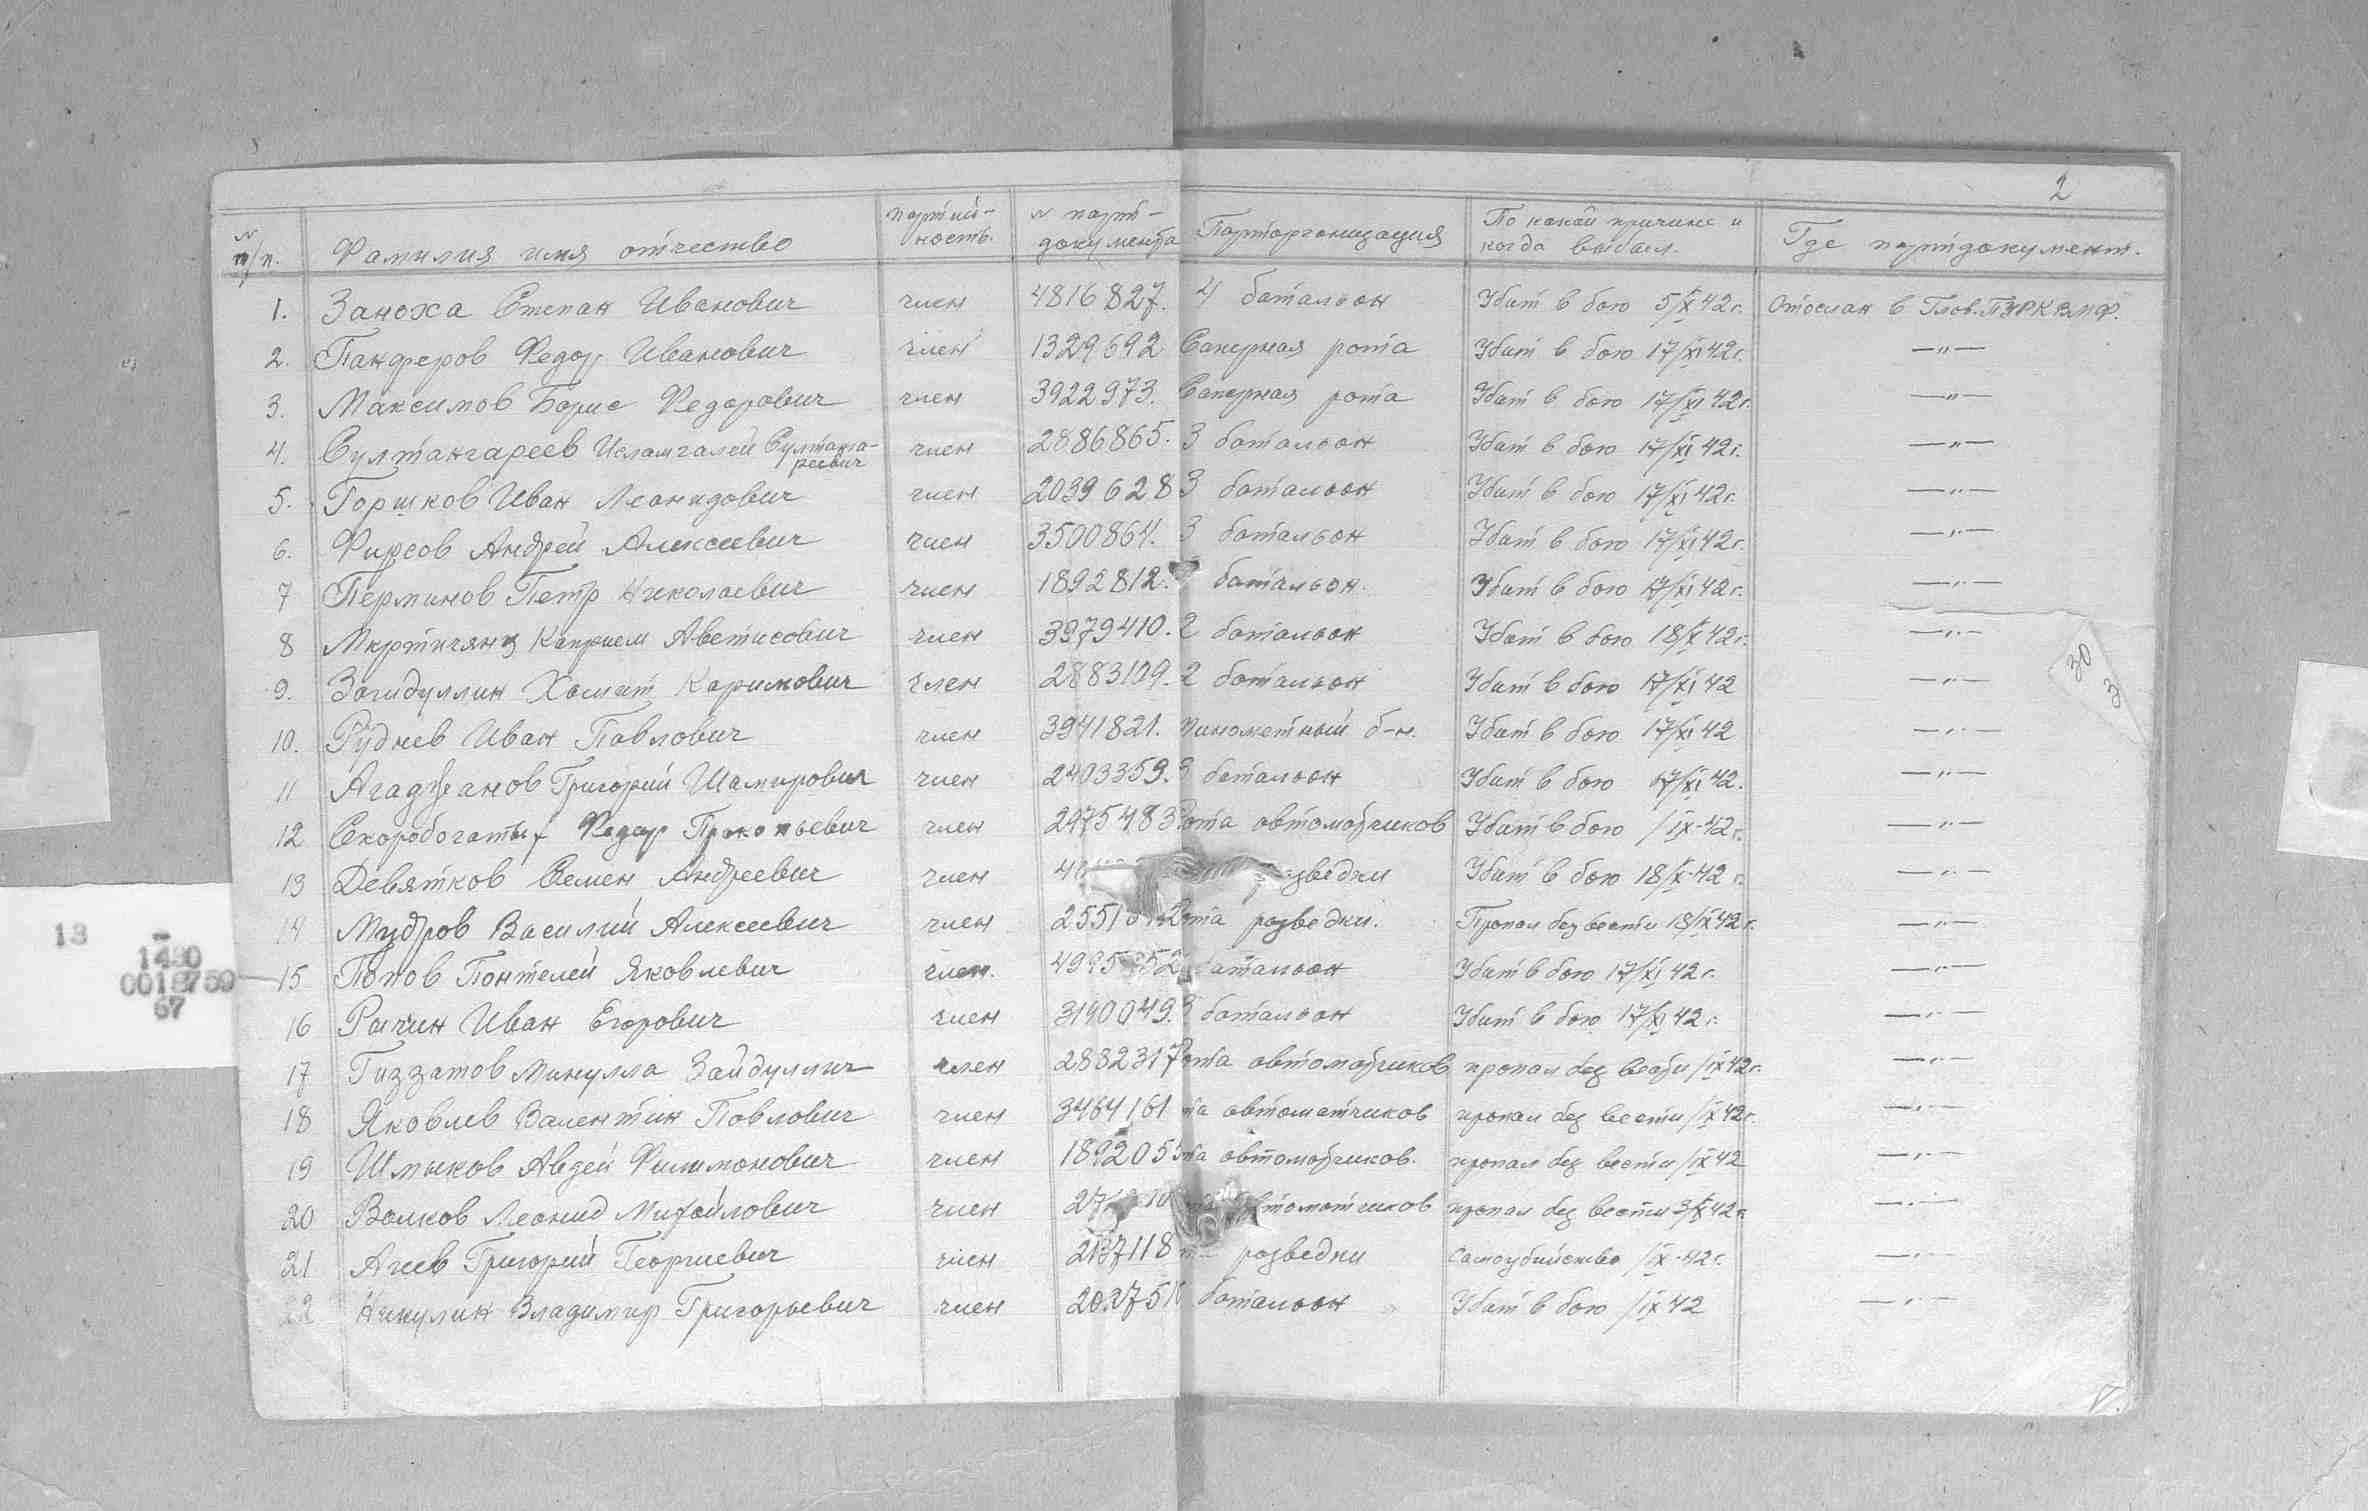 2
№ п/п. Фамилия имя отчество партий-ность. № парт-документа Парторганизация По какой причине и когда выбыл. Где партдокумент.
1. Заноха Степан Иванович член 4816827. 4 батальон Убит в бою 5/X 42 г. Отослан в Глав. ПУРК ВМФ.
2. Панферов Федор Иванович член 1329692 Саперная рота Убит в бою 17/XI 42 г. —"—
3. Максимов Борис Федорович член 3922973. Саперная рота Убит в бою 17/XI 42 г. —"—
4. Султангареев Исламгалей Султанга-реевич член 2886865. 3 батальон Убит в бою 17/XI 42 г. —"—
5. Горшков Иван Леонидович член 2039628 3 батальон Убит в бою 17/XI 42 г. —"—
6. Фирсов Андрей Алексеевич член 3500864. 3 батальон Убит в бою 17/XI 42 г. —"—
7 Перминов Петр Николаевич член 1892812. батальон. Убит в бою 17/XI 42 г. —"—
8 Мкртичянц Каприел Аветисович член 3979410. 2 батальон Убит в бою 18/X 42 г. —"—
9. Загидуллин Хамит Каримович член 2883109. 2 батальон Убит в бою 17/XI 42 —"—
30
3
10. Руднев Иван Павлович член 3941821. Минометный б-н. Убит в бою 17/XI 42 —"—
11 Агаджанов Григорий Шамирович член 2403359. 3 батальон Убит в бою 17/XI 42. —"—
12 Скоробогатых Федор Прокопьевич член 2475483 Рота автоматчиков Убит в бою /IX-42 г. —"—
13 Девятков Семен Андреевич член разведки Убит в бою 18/X-42 г. —"—
14 Мудров Василий Алексеевич член Рота разведки. Пропал без вести 18/IX 42 г. —"—
15 Попов Пантелей Яковлевич член. батальон Убит в бою 17/XI 42 г. —"—
16 Рычин Иван Егорович член 3190049. 3 батальон Убит в бою 17/XI 42 г. —"—
17 Гиззатов Минулла Зайдуллич член 2882317 Рота автоматчиков пропал без вести /IX 42 г. —"—
18 Яковлев Валентин Павлович член 3464161 та автоматчиков пропал без вести /IX 42 г. —"—
19 Шмыков Авдей Филимонович член 189205 та автоматчиков. пропал без вести /IX 42 —"—
20 Волков Леонид Михайлович член автоматчиков пропал без вести 3/X 42 г. —"—
21 Агеев Григорий Георгиевич член 2137118 разведки Самоубийство /IX-42 г. —"—
22 Никулин Владимир Григорьевич член батальон Убит в бою /IX 42 —"—
13
1480
0018759
67